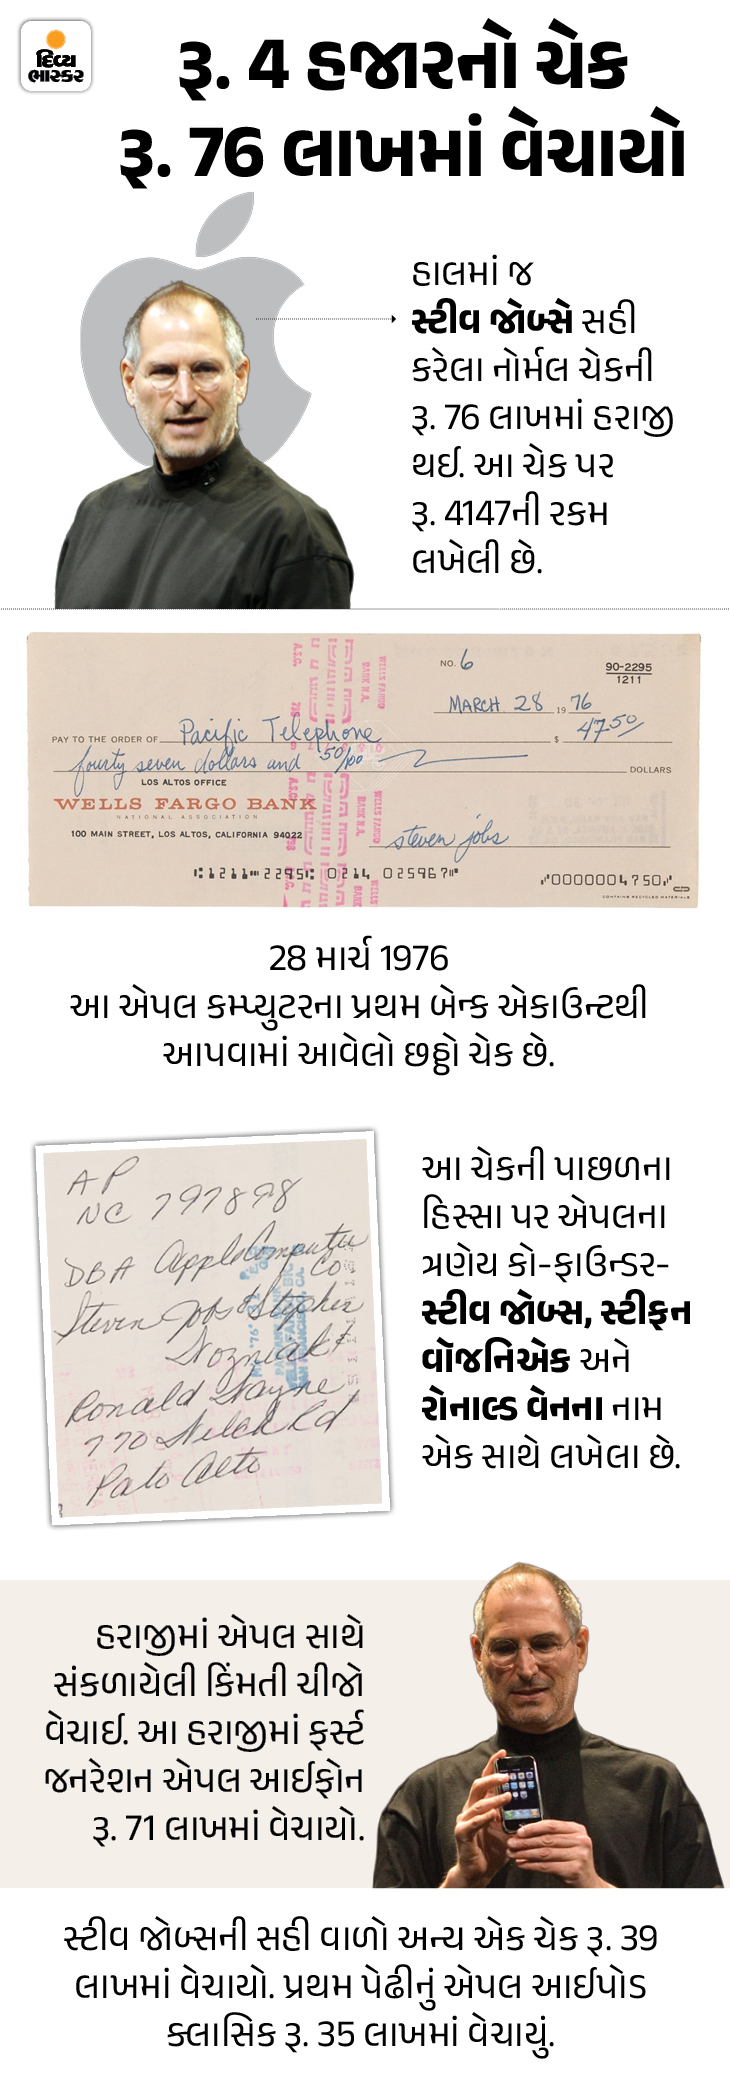 દિવ્ય
ભાસ્કર
રૂ. 4 હજારનો ચેક
રૂ. 76 લાખમાં વેચાયો
હાલમાં જ
સ્ટીવ જૉબ્સે સહી
કરેલા નોર્મલ ચેકની
રૂ. 76 લાખમાં હરાજી
થઈ. આ ચેક પર
રૂ. 4147ની રકમ
લખેલી છે.
NO. 6
90-2295
1211
MARCH 28 19 76
PAY TO THE ORDER OF Pacific Telephone $ 47.50
fourty seven dollars and 50/100 DOLLARS
LOS ALTOS OFFICE
WELLS FARGO BANK
NATIONAL ASSOCIATION
100 MAIN STREET, LOS ALTOS, CALIFORNIA 94022
steven jobs
⑆1211⑉2295⑆ 0214 025967⑈ ⑇0000004750⑇
CONTAINS RECYCLED MATERIALS
28 માર્ચ 1976
આ એપલ કમ્પ્યુટરના પ્રથમ બેન્ક એકાઉન્ટથી
આપવામાં આવેલો છઠ્ઠો ચેક છે.
AP
NC 797898
DBA Apple Computer
Co.
Steven Jobs & Stephen
Wozniak &
Ronald Wayne
770 Welch Rd
Palo Alto
આ ચેકની પાછળના
હિસ્સા પર એપલના
ત્રણેય કો-ફાઉન્ડર-
સ્ટીવ જૉબ્સ, સ્ટીફન
વૉજનિએક અને
રોનાલ્ડ વેનના નામ
એક સાથે લખેલા છે.
હરાજીમાં એપલ સાથે
સંકળાયેલી કિંમતી ચીજો
વેચાઈ. આ હરાજીમાં ફર્સ્ટ
જનરેશન એપલ આઈફોન
રૂ. 71 લાખમાં વેચાયો.
સ્ટીવ જૉબ્સની સહી વાળો અન્ય એક ચેક રૂ. 39
લાખમાં વેચાયો. પ્રથમ પેઢીનું એપલ આઈપોડ
ક્લાસિક રૂ. 35 લાખમાં વેચાયું.